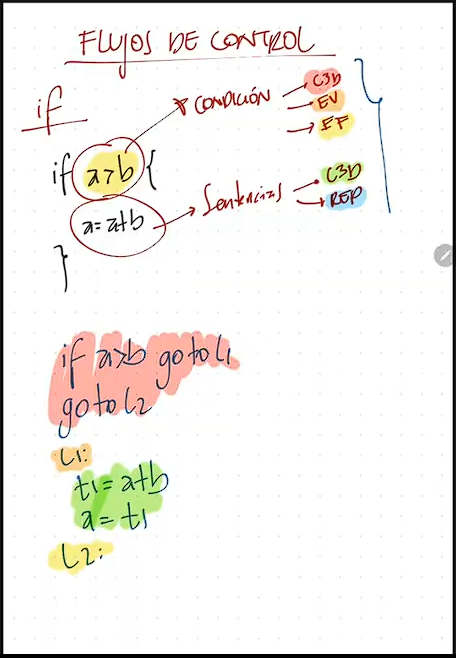 FLUJOS DE CONTROL
if
CONDICIÓN
C3D
EV
EF
if a>b {
a=a+b
}
Sentencias
C3D
REP
if a>b goto L1
goto L2
L1:
t1=a+b
a=t1
L2: